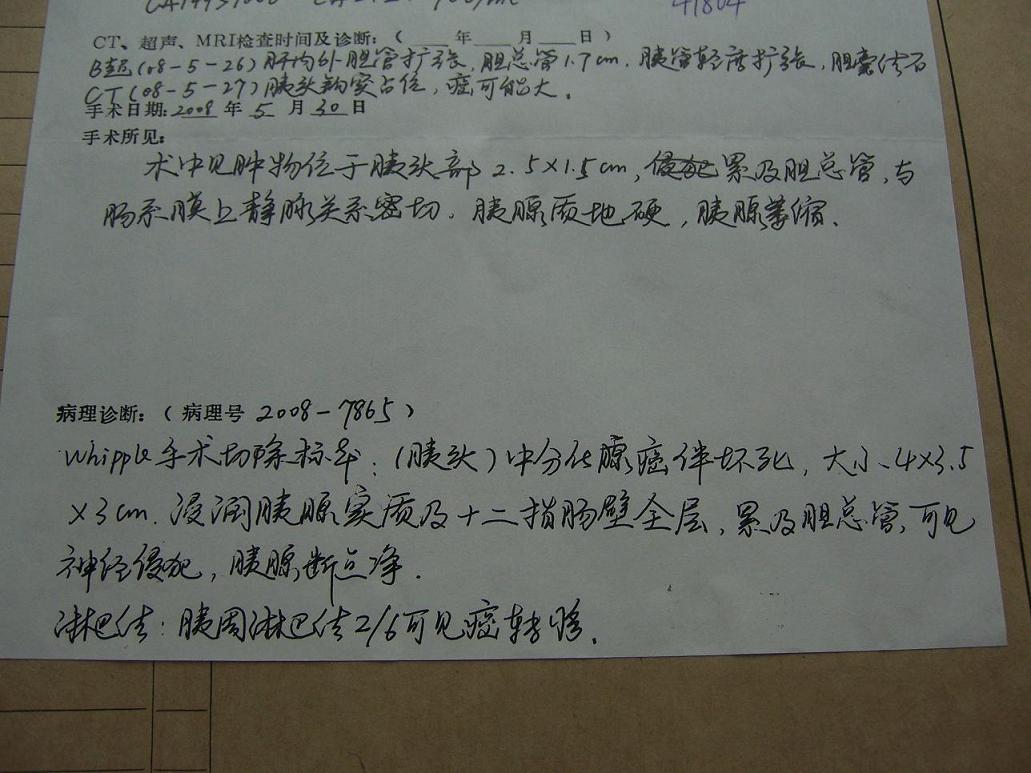 41804
CT、超声、MRI检查时间及诊断:(___年___月___日)
B超(08-5-26)肝内外胆管扩张,胆总管1.7cm.胰管轻度扩张,胆囊结石
CT(08-5-27)胰头钩突占位,癌可能大.
手术日期:2008年5月30日
手术所见:
术中见肿物位于胰头部2.5×1.5cm,侵犯累及胆总管,与
肠系膜上静脉关系密切.胰腺质地硬,胰腺萎缩.
病理诊断:(病理号 2008-7865)
Whipple手术切除标本:(胰头)中分化腺癌伴坏死,大小4×3.5
×3cm.浸润胰腺实质及十二指肠壁全层,累及胆总管,可见
神经侵犯,胰腺断点净.
淋巴结:胰周淋巴结2/6可见癌转移.